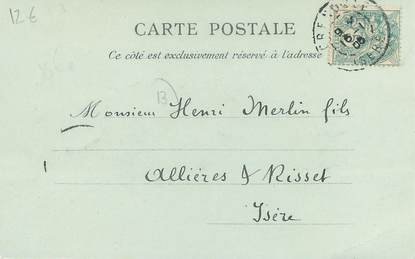 12 €
CARTE POSTALE
Ce côté est exclusivement réservé à l'adresse
GRENOBLE
ISERE
13
Monsieur Henri Merlin fils
Allières & Risset
Isère